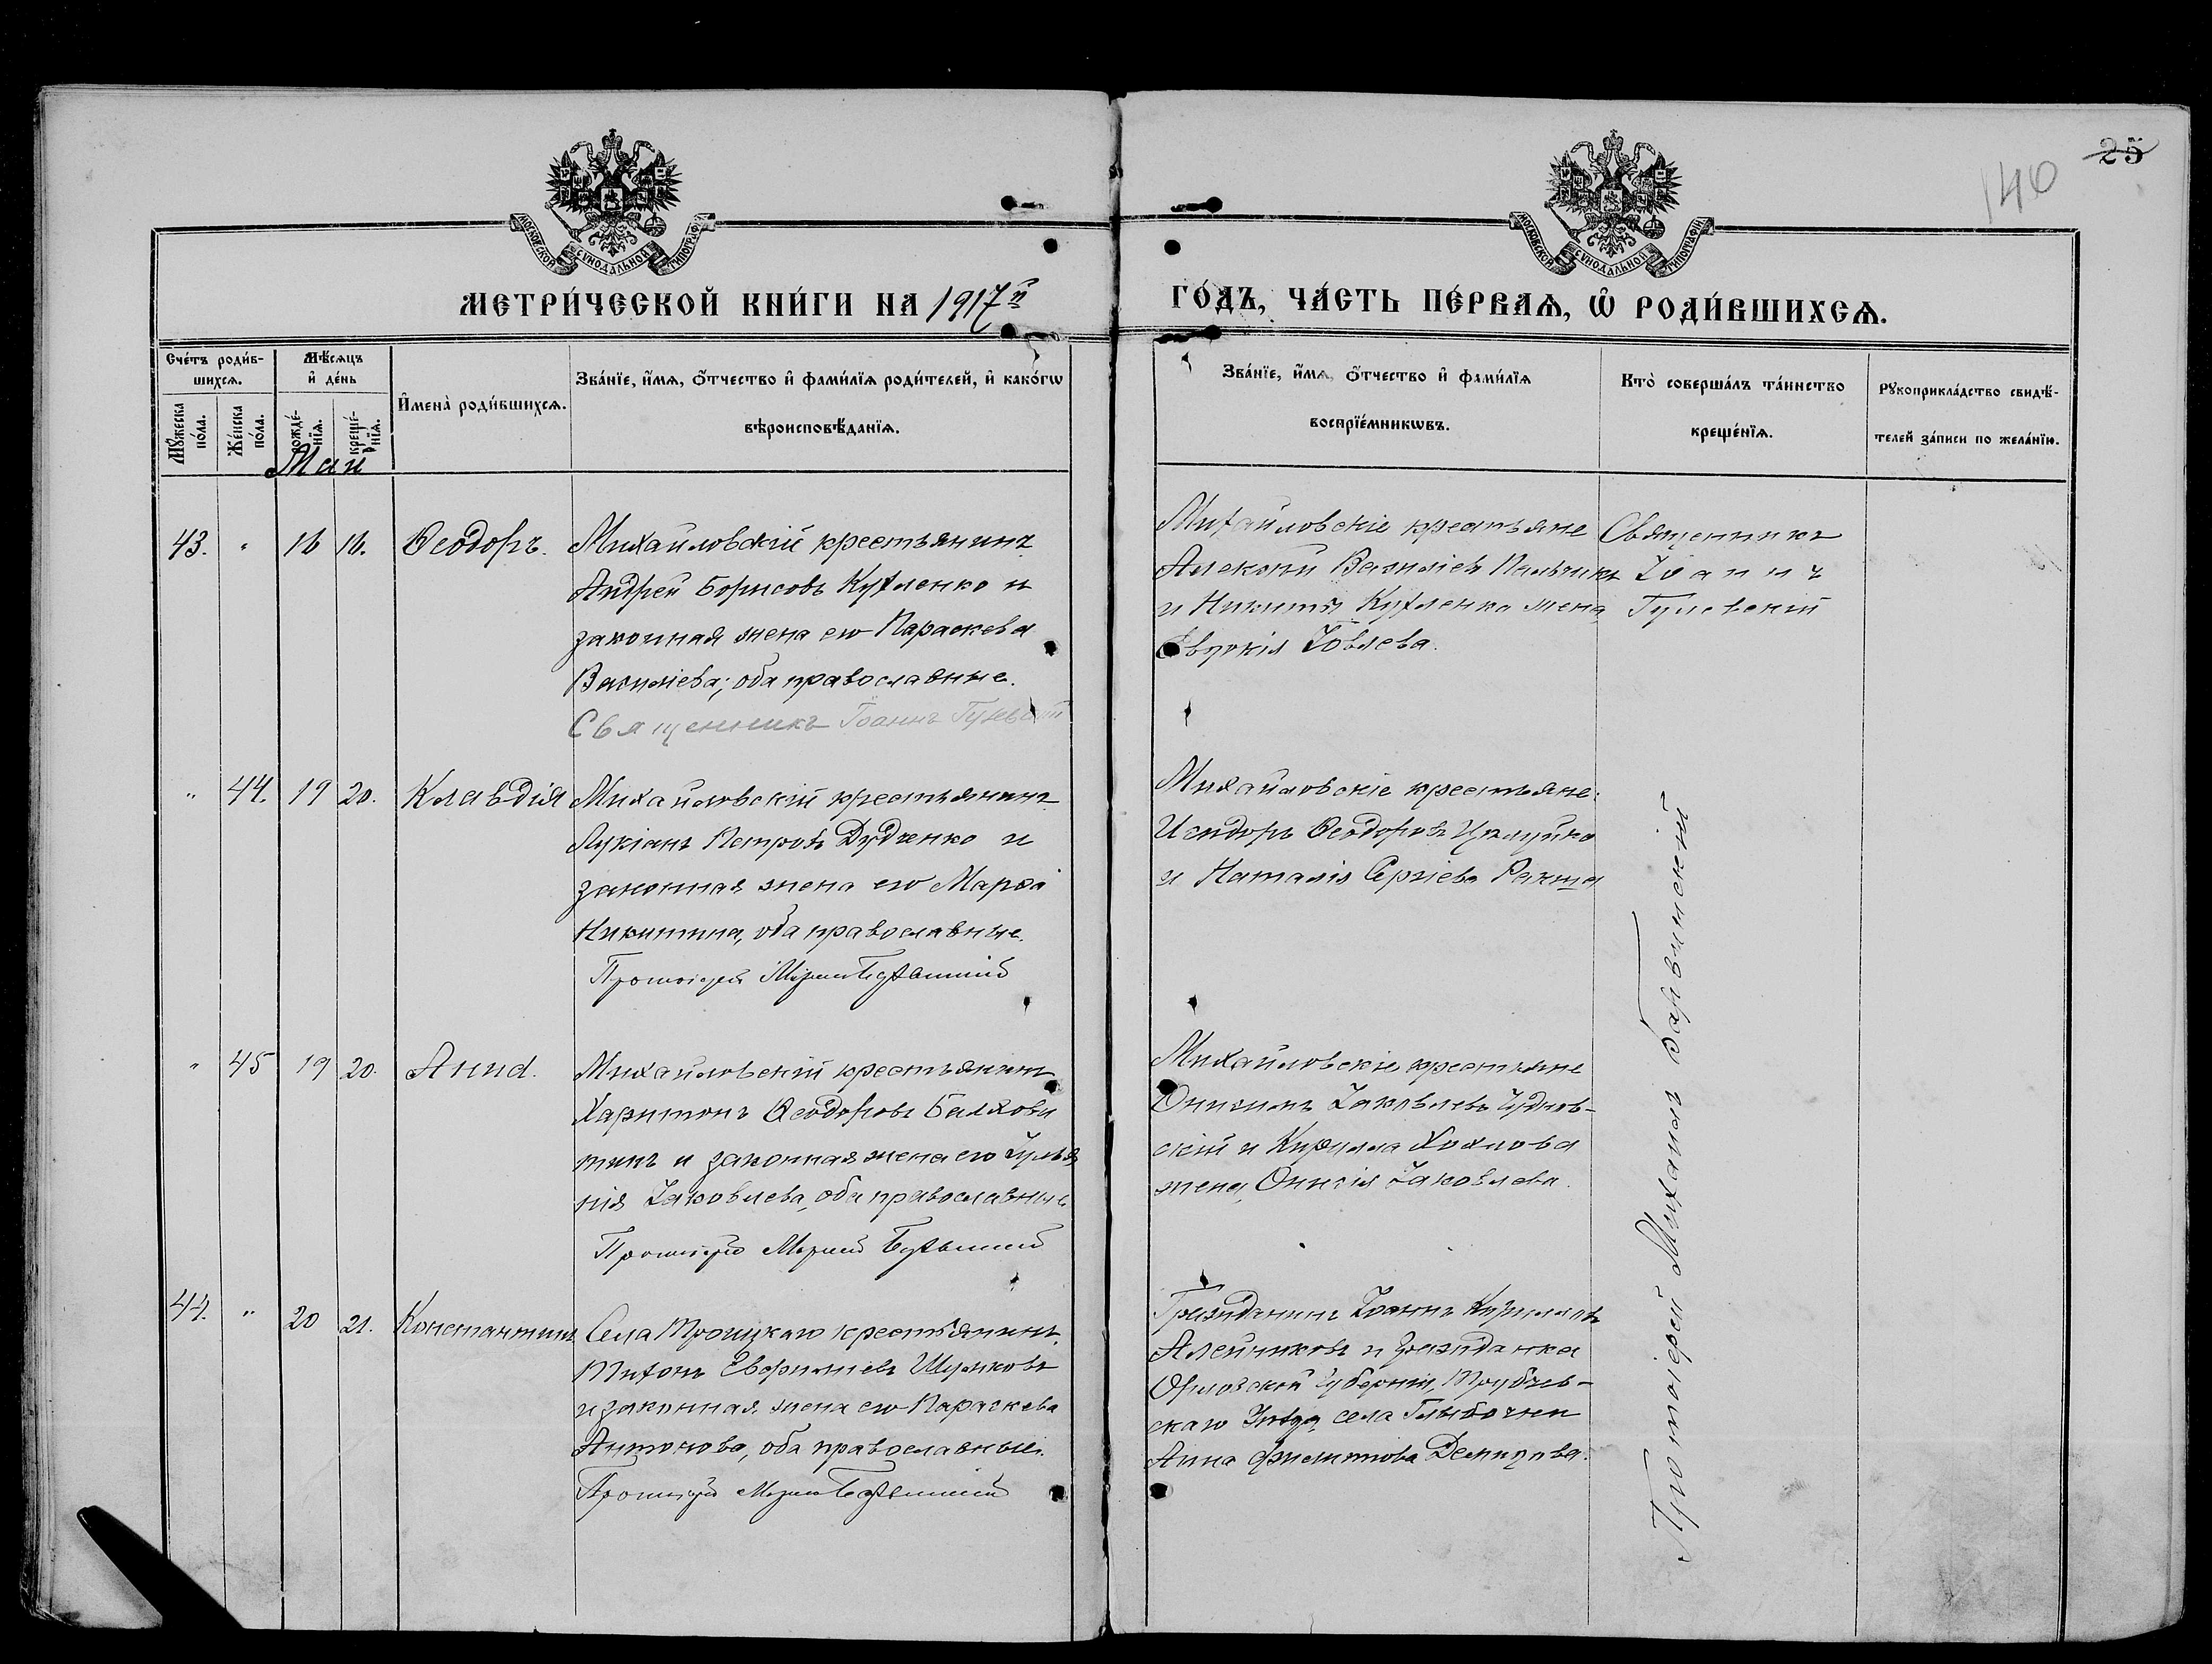 25
140
МОСКОВСКОЙ СѴНОДАЛЬНОЙ ТИПОГРАФІИ
МОСКОВСКОЙ СѴНОДАЛЬНОЙ ТИПОГРАФІИ
МЕТРИ́ЧЕСКОЙ КНИ́ГИ НА 1917й ГО́ДЪ, ЧА́СТЬ ПЕ́РВАѦ, Ѡ҆ РОДИ́ВШИХСѦ.
Сче́тъ роди́в-
шихсѧ.
Мꙋ́жеска по́ла.
Же́нска по́ла.
Мѣ́сѧцъ
и҆ де́нь
рожде́-
нїѧ.
креще́-
нїѧ.
И҆мена̀ роди́вшихсѧ.
Зва́нїе, и҆́мѧ, ѻ҆́тчество и҆ фами́лїѧ роди́телей, и҆ како́гѡ
вѣроисповѣ́данїѧ.
Зва́нїе, и҆́мѧ, ѻ҆́тчество и҆ фами́лїѧ
воспрїе́мникѡвъ.
Кто̀ соверша́лъ та́инство
креще́нїѧ.
Рꙋкоприкла́дство свидѣ́-
телей за́писи по жела́нїю.
Маи
43. " 16 16. Ѳеодоръ.
Михайловскій крестьянинъ
Андрей Борисовъ Кухленко и
законная жена его Параскева
Василіева; оба православные.
Священникъ Іоаннъ
Михайловскіе крестьяне
Алексій Василіев Пальчикъ
и Никиты Кухленко жена
Евдокія Іовлева.
Священникъ
Іоаннъ
" 44. 19 20. Клавдія
Михайловскій крестьянинъ
Лукіанъ Петровъ Дудченко и
законная жена его Марѳа
Никитина, оба православные.
Протоіерей
Михайловскіе крестьяне:
Исидоръ Ѳеодоровъ
и Наталія Сергіева Ракша
" 45 19 20. Анна.
Михайловскій крестьянинъ
Харитонъ Ѳеодоровъ Балахов
тинъ и законная жена его Іулiа
нія Іаковлева, оба православные
Протоіерей
Михайловскіе крестьяне
Онисимъ Іаковлевъ Чуднов-
скій и Кирилла Хохлова
жена, Онисія Іаковлева.
44. " 20 21. Константинъ
Села Троицкаго крестьянинъ
Тихонъ Евфиміевъ Шумковъ
и законная жена его Параскева
Антонова, оба православные.
Протоіерей
Гражданинъ Іоаннъ Кирилловъ
Алейниковъ и гражданка
Орловской губерніи, Трубчев-
скаго уѣзда, села Глыбочки
Анна Филиппова Демидова.
Протоіерей Михаилъ Барвинскій